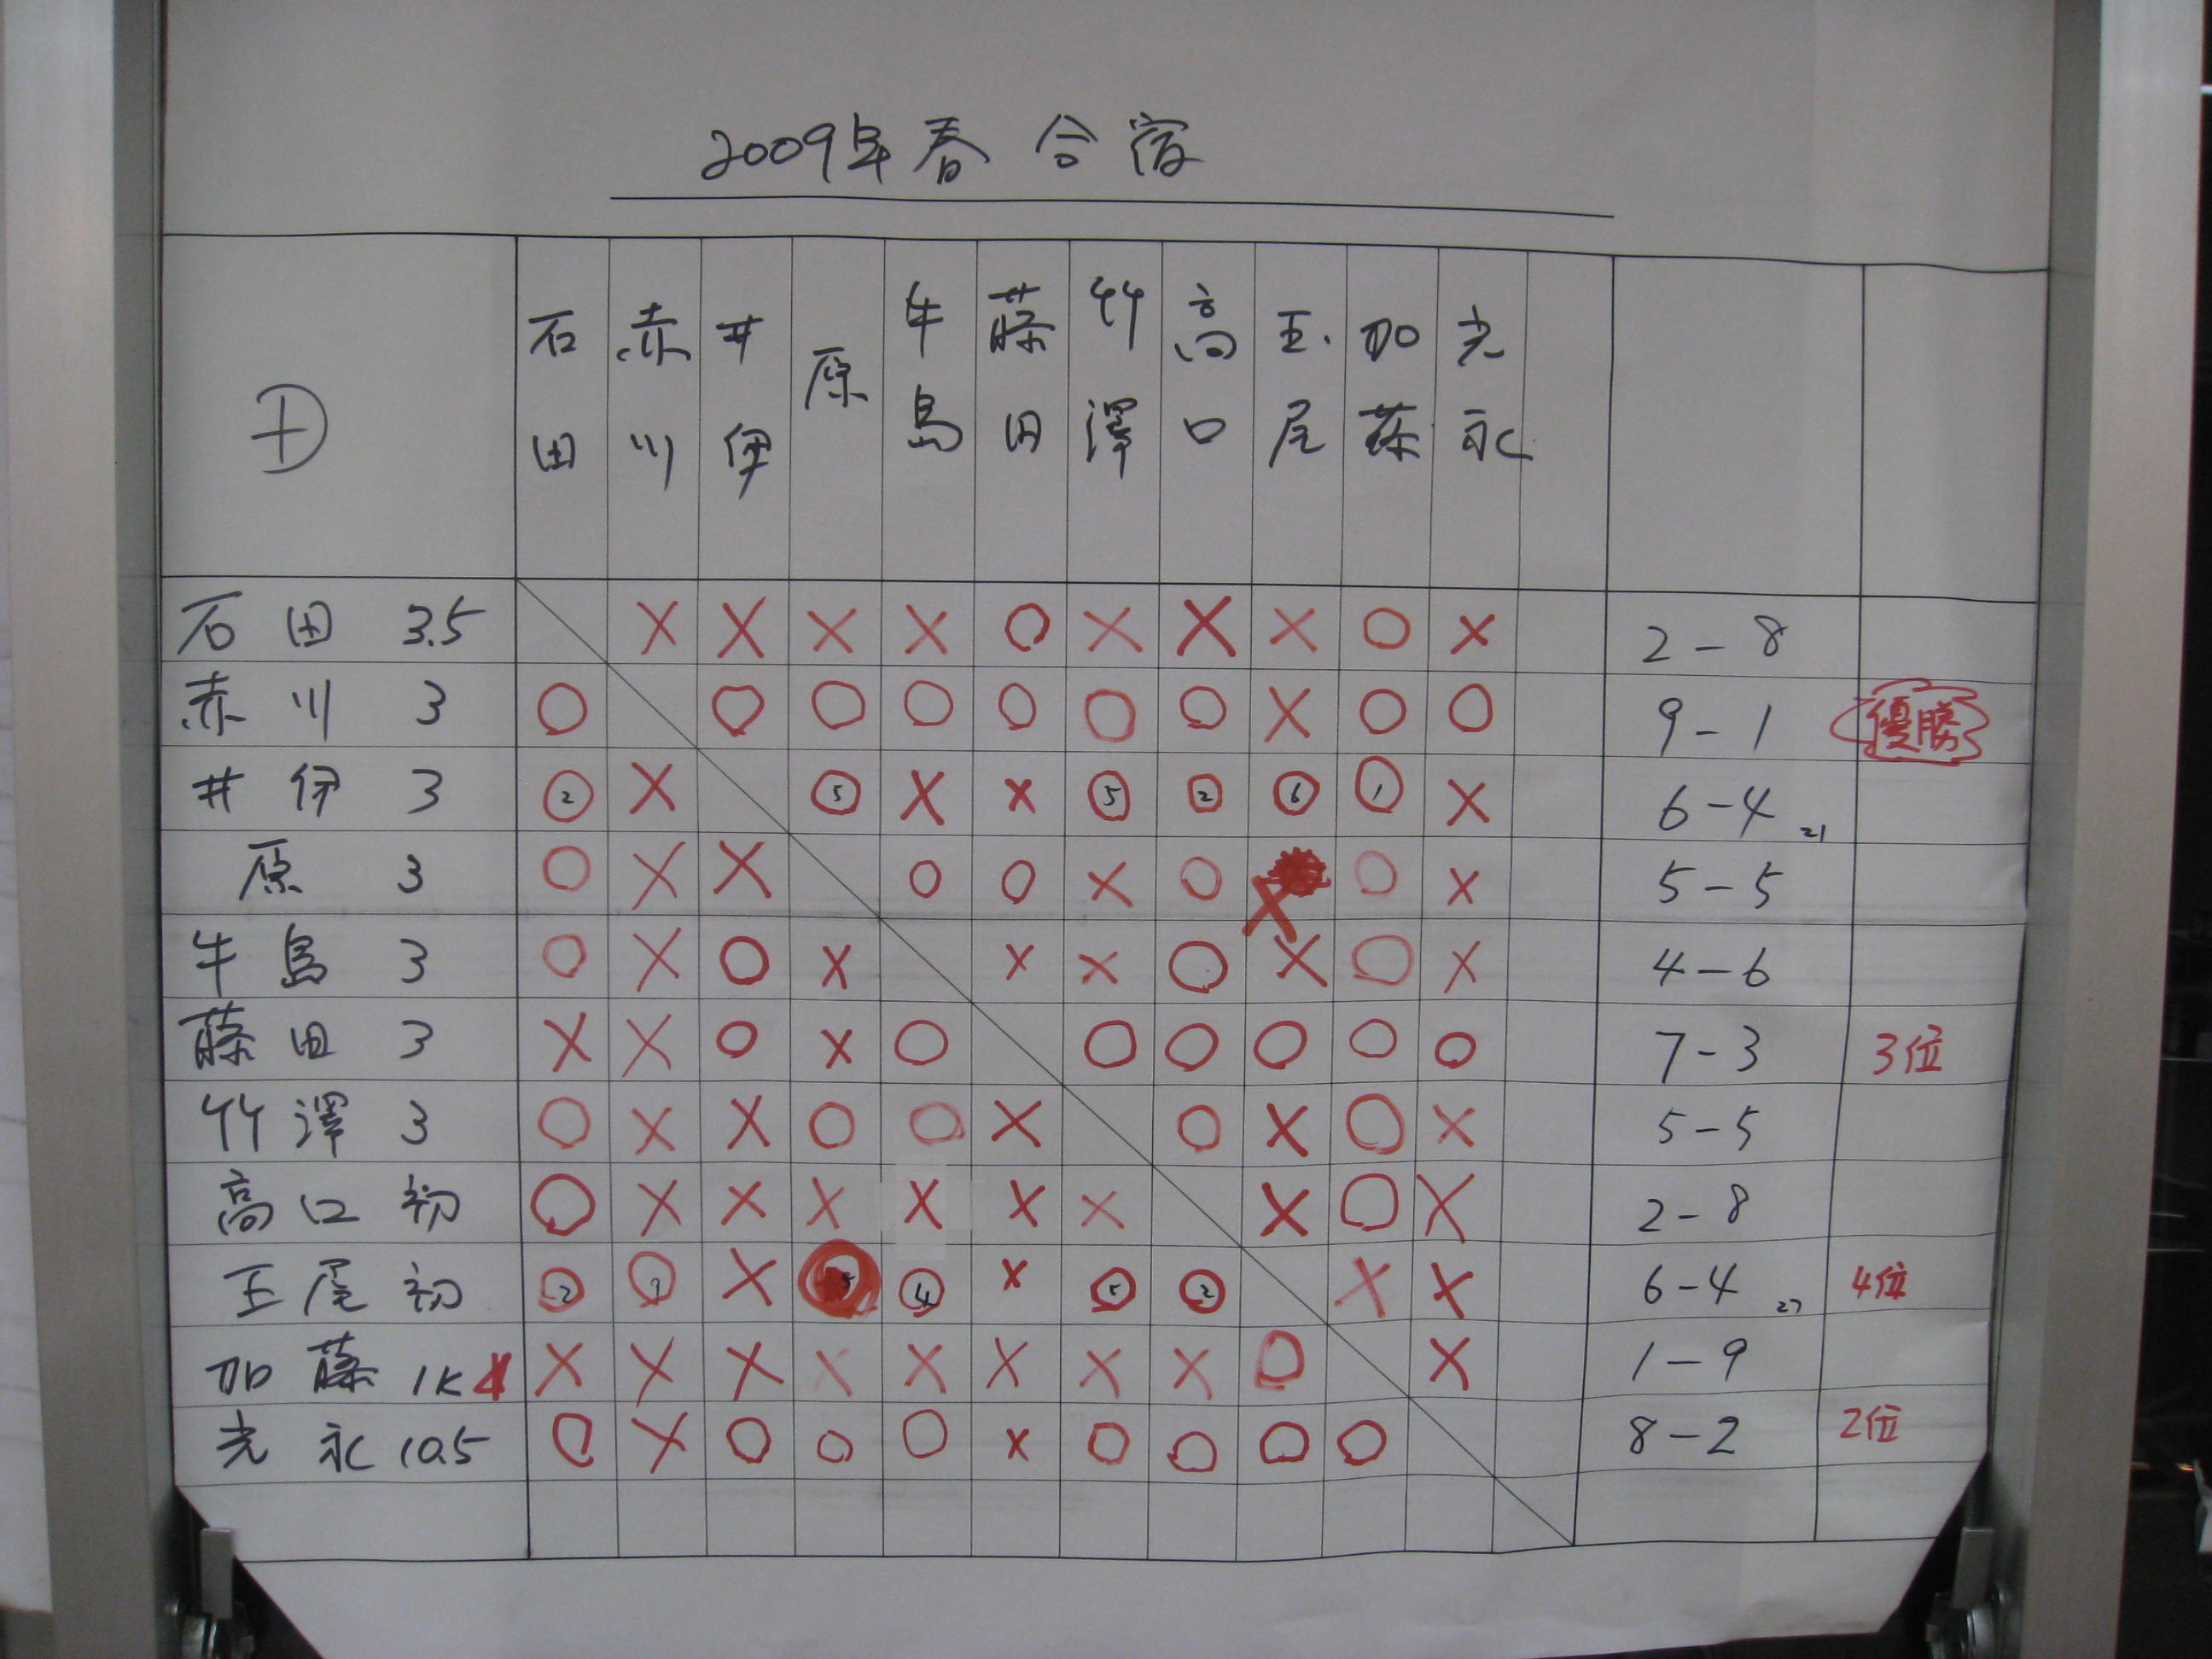 2009年春 合宿
D 石田 赤川 井伊 原 牛島 藤田 竹澤 高口 玉尾 加藤 光永
石田 3.5 × × × × ○ × × × ○ × 2-8
赤川 3 ○ ○ ○ ○ ○ ○ ○ × ○ ○ 9-1 優勝
井伊 3 ② × ⑤ × × ⑤ ② ⑥ ① × 6-4 21
原 3 ○ × × ○ ○ × ○ × ○ × 5-5
牛島 3 ○ × ○ × × × ○ × ○ × 4-6
藤田 3 × × ○ × ○ ○ ○ ○ ○ ○ 7-3 3位
竹澤 3 ○ × × ○ ○ × ○ × ○ × 5-5
高口 初 ○ × × × × × × × ○ × 2-8
玉尾 初 ② × ④ × ⑤ ② × × 6-4 4位
加藤 1K × × × × × × × × ○ × 1-9
光永 10.5 ○ × ○ ○ ○ × ○ ○ ○ ○ 8-2 2位